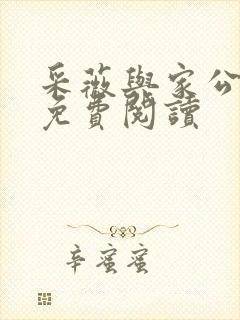 采薇與家公
免費閱讀
辛蜜蜜